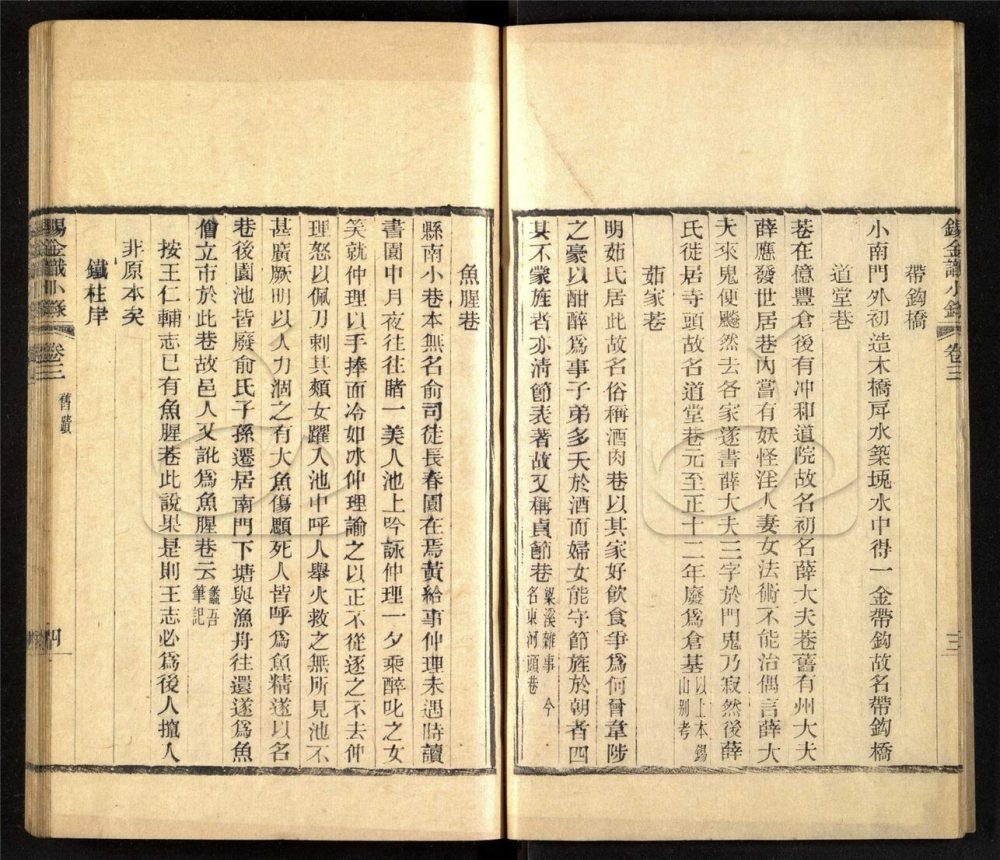 錫金識小錄 卷三 三
帶鈎橋
小南門外初造木橋戽水築塊水中得一金帶鈎故名帶鈎橋
道堂巷
巷在億豐倉後有冲和道院故名初名薛大夫巷舊有州大夫
薛應發世居巷內嘗有妖怪淫人妻女法術不能治偶言薛大
夫來鬼便颺然去各家遂書薛大夫三字於門鬼乃寂然後薛
氏徙居寺頭故名道堂巷元至正十二年廢爲倉基以上本錫山別考
茹家巷
明茹氏居此故名俗稱酒肉巷以其家好飲食爭爲何曾韋陟
之豪以酣醉爲事子弟多夭於酒而婦女能守節旌於朝者四
其不蒙旌者亦清節表著故又稱貞節巷梁溪雜事 今名東河頭巷
魚腥巷
縣南小巷本無名俞司徒長春園在焉黃給事仲理未遇時讀
書園中月夜往往睹一美人池上吟詠仲理一夕乘醉叱之女
笑就仲理以手捧面冷如冰仲理諭之以正不從逐之不去仲
理怒以佩刀刺其頰女躍入池中呼人舉火救之無所見池不
甚廣厥明以人力涸之有大魚傷顋死人皆呼爲魚精遂以名
巷後園池皆廢俞氏子孫遷居南門下塘與漁舟往還遂爲魚
僧立市於此巷故邑人又訛爲魚腥巷云蠡吾筆記
按王仁輔志已有魚腥巷此說果是則王志必爲後人攙人
非原本矣
鐵柱岸
錫金識小錄 卷三 舊蹟 四